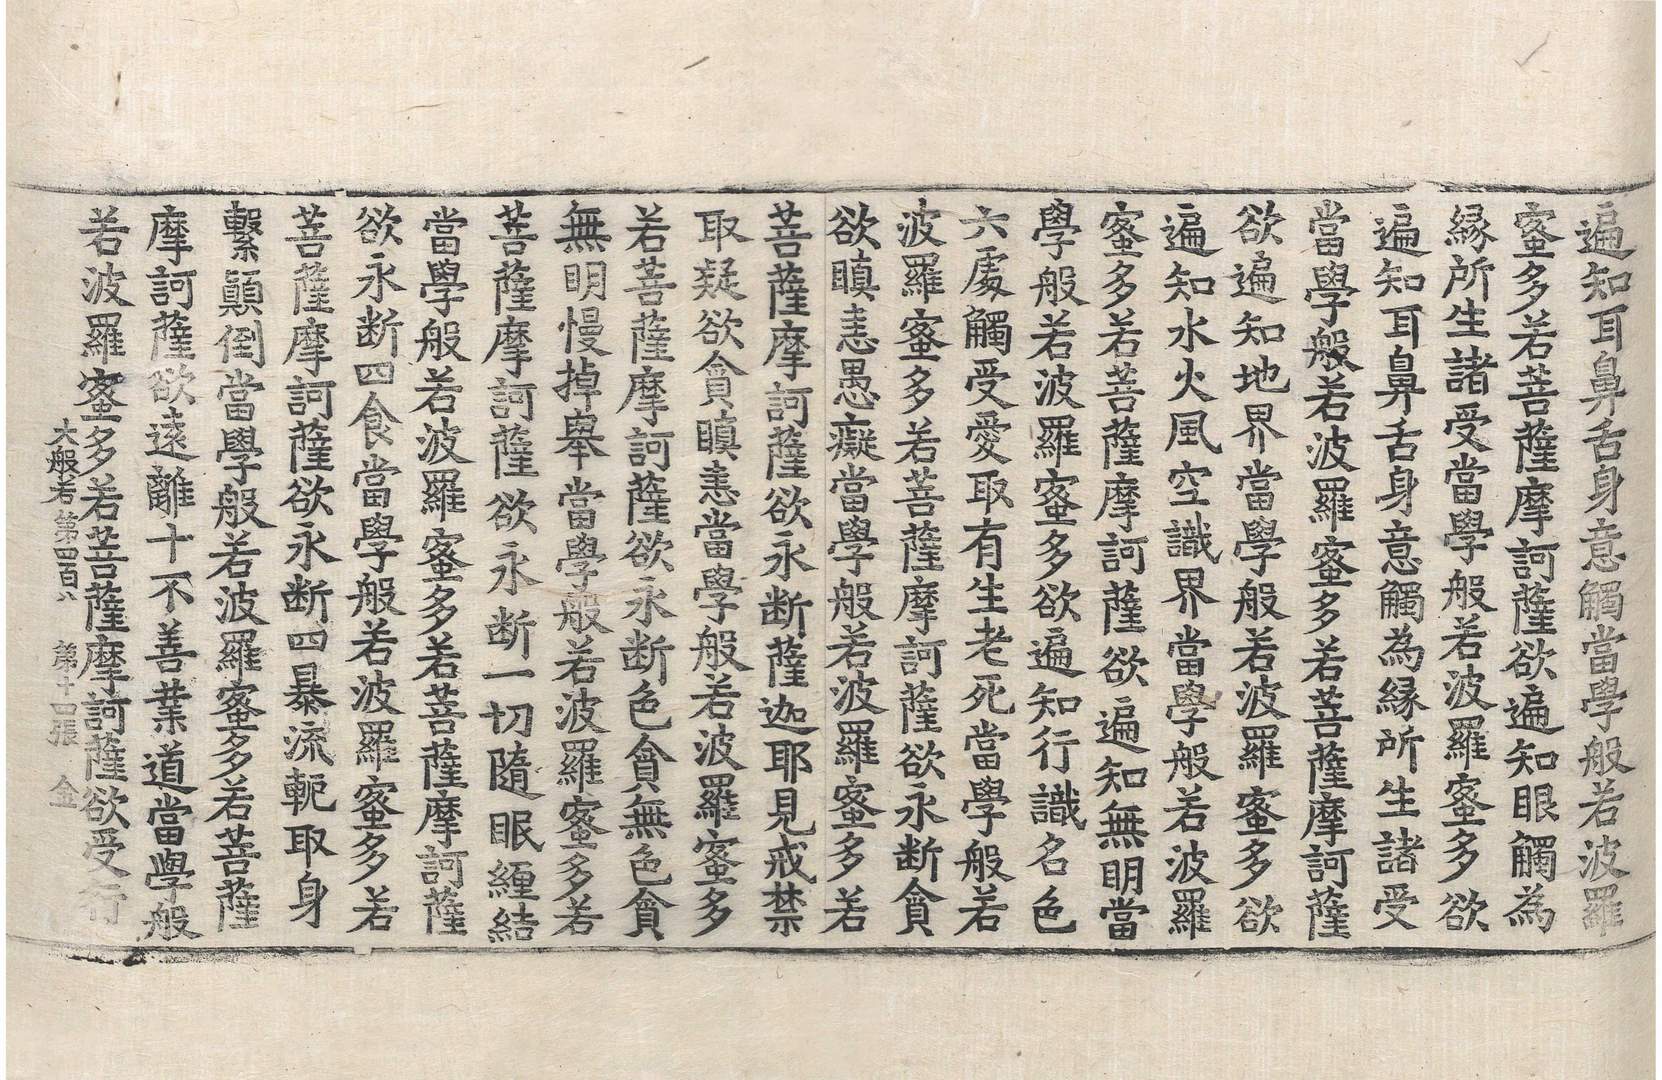 遍知耳鼻舌身意觸當學般若波羅
蜜多若菩薩摩訶薩欲遍知眼觸為
緣所生諸受當學般若波羅蜜多欲
遍知耳鼻舌身意觸為緣所生諸受
當學般若波羅蜜多若菩薩摩訶薩
欲遍知地界當學般若波羅蜜多欲
遍知水火風空識界當學般若波羅
蜜多若菩薩摩訶薩欲遍知無明當
學般若波羅蜜多欲遍知行識名色
六處觸受愛取有生老死當學般若
波羅蜜多若菩薩摩訶薩欲永断貪
欲瞋恚愚癡當學般若波羅蜜多若
菩薩摩訶薩欲永断薩迦耶見戒禁
取疑欲貪瞋恚當學般若波羅蜜多
若菩薩摩訶薩欲永断色貪無色貪
無明慢掉舉當學般若波羅蜜多若
菩薩摩訶薩欲永断一切隨眠纏結
當學般若波羅蜜多若菩薩摩訶薩
欲永断四食當學般若波羅蜜多若
菩薩摩訶薩欲永断四暴流軛取身
繫顛倒當學般若波羅蜜多若菩薩
摩訶薩欲遠離十不善業道當學般
若波羅蜜多若菩薩摩訶薩欲受行
大般若第四百八 第十四張 金